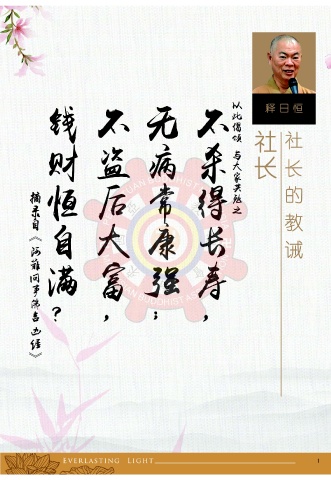 释日恒
社长的教诫
社长
以此偈颂 与大家共勉之
不杀得长寿，
无病常康强；
不盗后大富，
钱财恒自满？
摘录自《阿难问事佛吉凶经》
EVERLASTING LIGHT
1